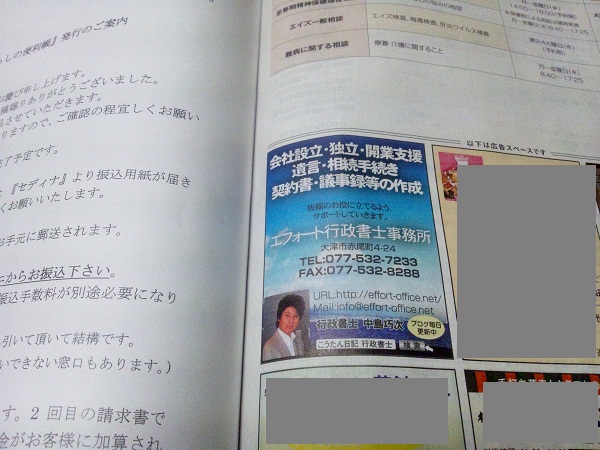 らしの便利帳』発行のご案内
お慶び申し上げます。
掲載賜りありがとうございました。
させていただきます。
りますので、ご確認の程宜しくお願い
了予定です。
『セディナ』より振込用紙が届き
くお願いいたします。
お手元に郵送されます。
からお振込下さい。
振込手数料が別途必要になり
引いて頂いて結構です。
いできない窓口もあります。)
す。2回目の請求書で
金がお客様に加算され
エイズ一般相談
エイズ検査、梅毒検査、肝炎ウイルス検査
難病に関する相談
療養・介護に関すること
(予約制)
月〜金曜日(※)
8:40〜17:25
以下は広告スペースです
会社設立・独立・開業支援
遺言・相続手続き
契約書・議事録等の作成
皆様のお役に立てるよう、
サポートしていきます。
エフォート行政書士事務所
大津市赤尾町4-24
TEL:077-532-7233
FAX:077-532-8288
URL:http://effort-office.net/
Mail:info@effort-office.net
行政書士 中島巧次
ブログ毎日
更新中
こうたん日記 行政書士 検索